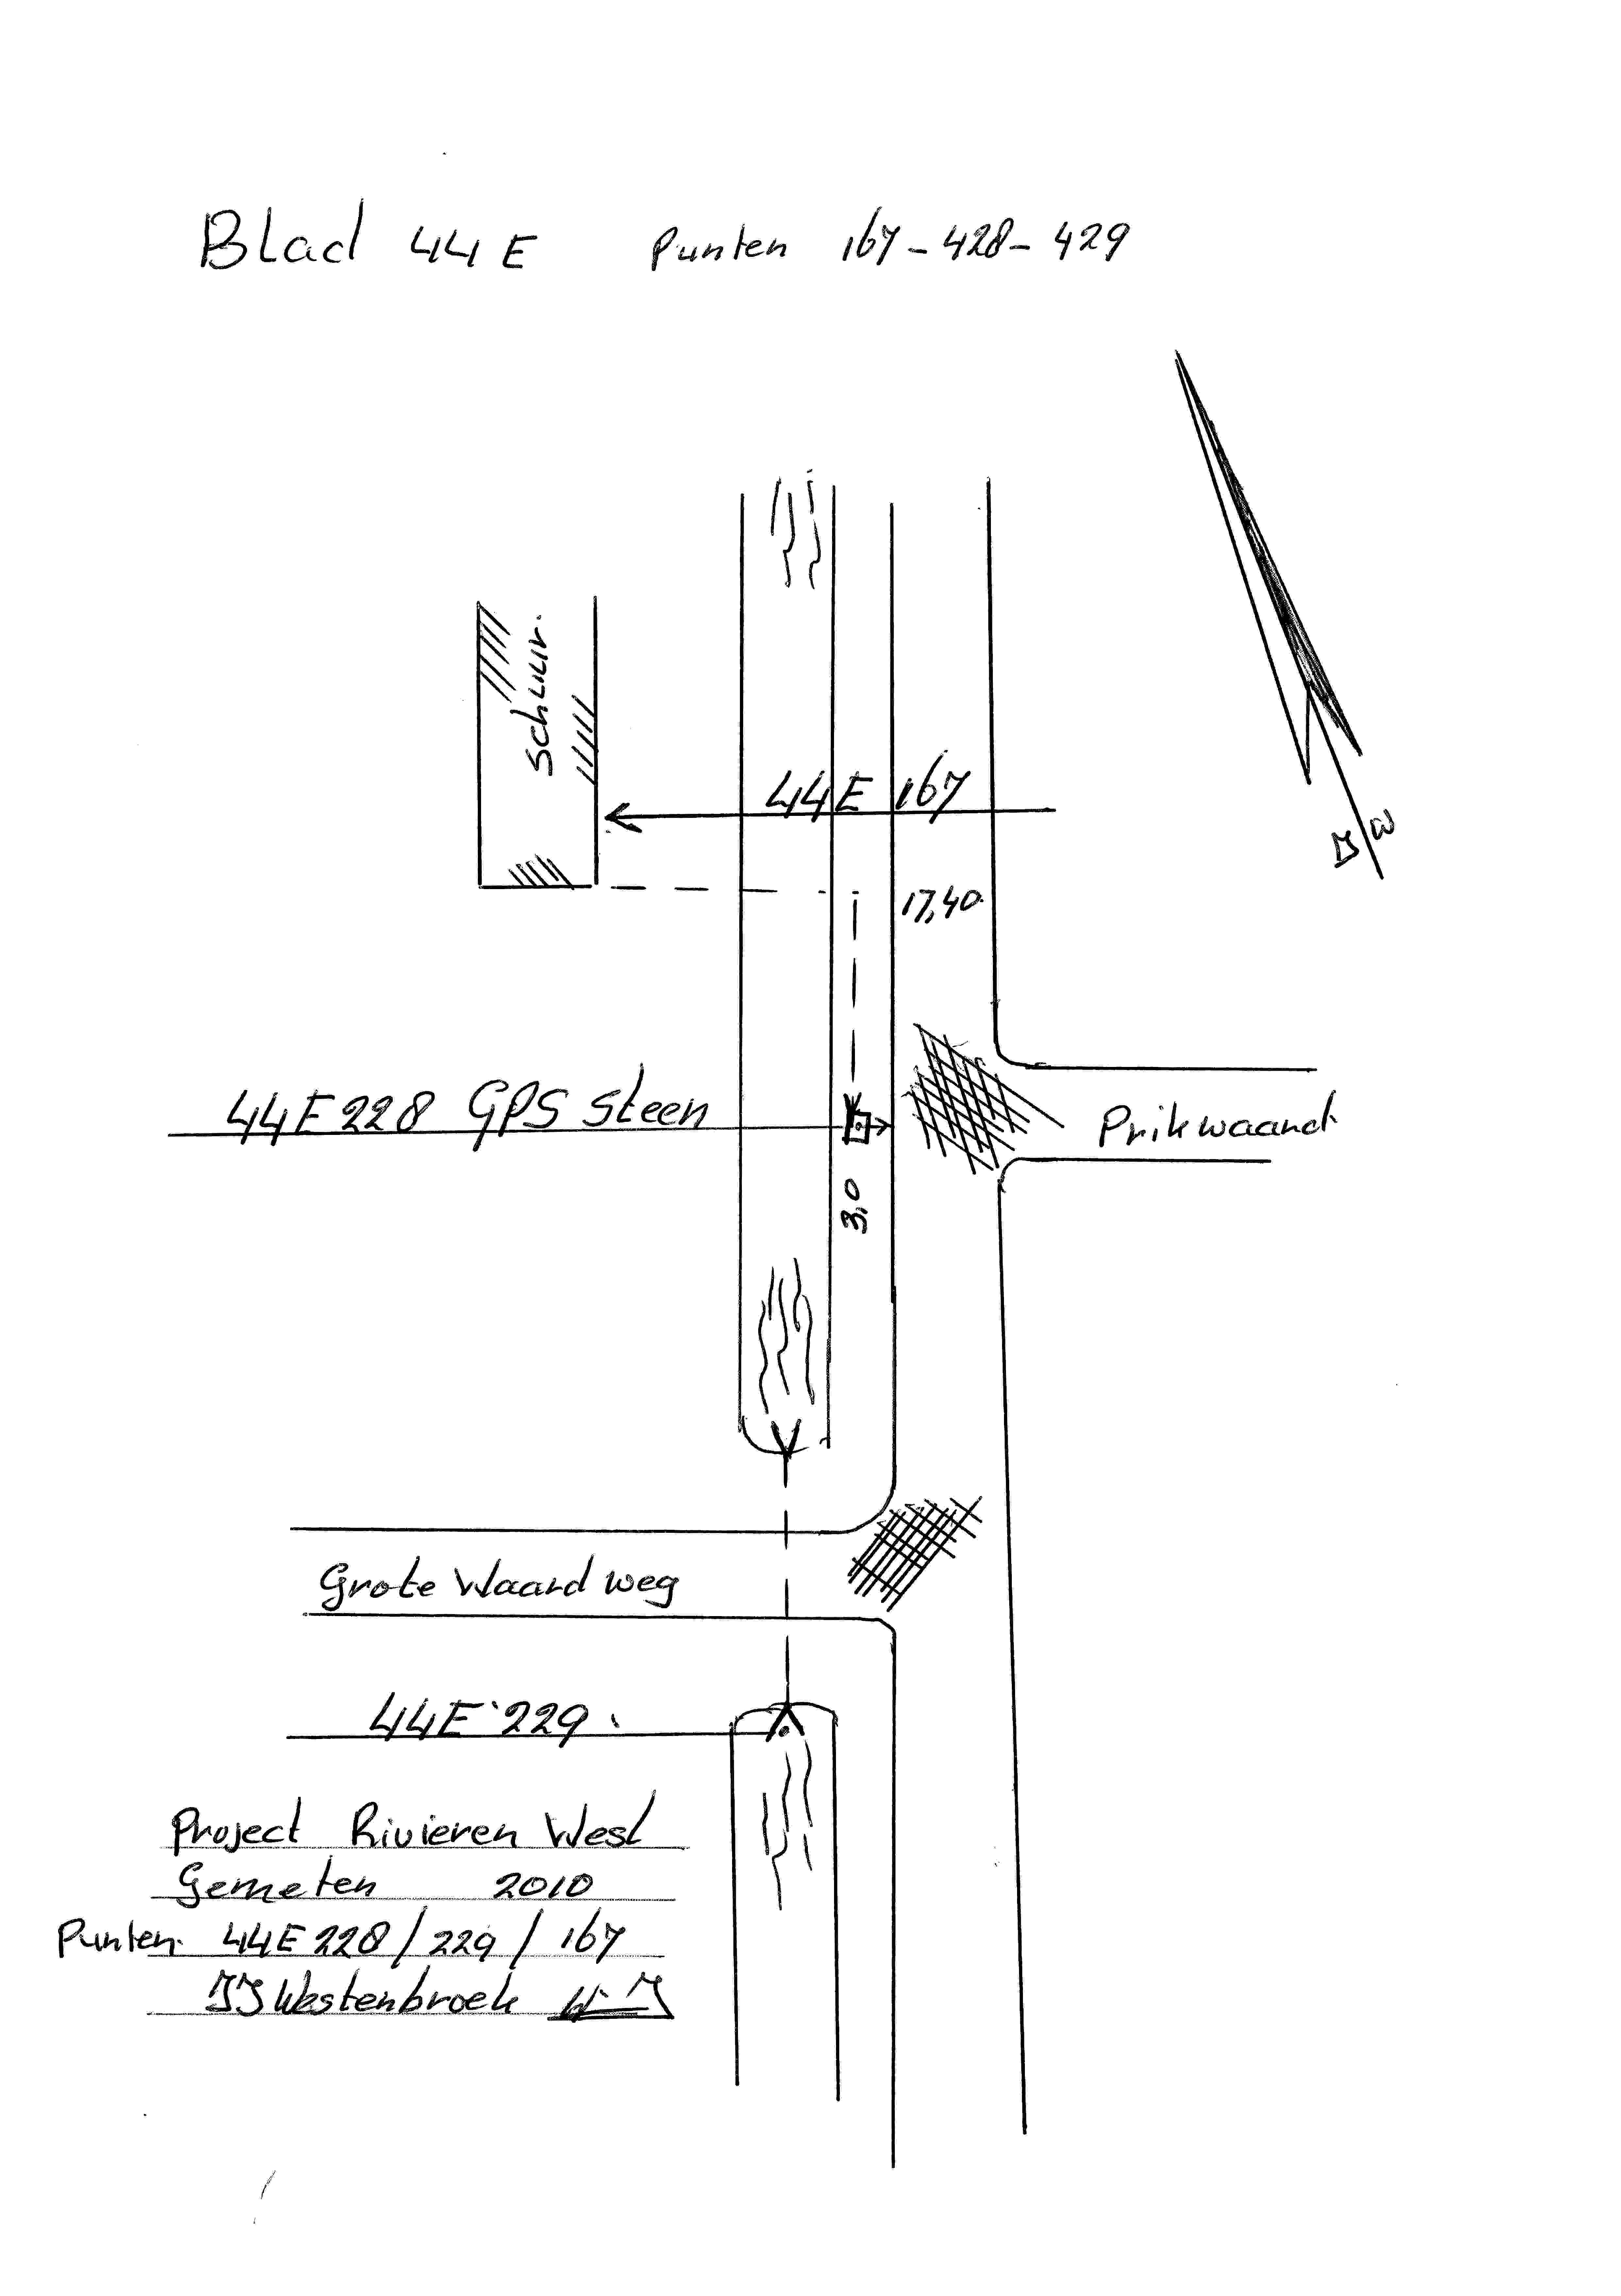 Blad 44 E Punten 167 - 428 - 429
Schuur.
44E 167
17,40
44E228 GPS Steen
Prikwaard
3,0
Grote Waard weg
44E 229
Project Rivieren West
Gemeten 2010
Punten 44E 228 / 229 / 167
JJ Westenbroek